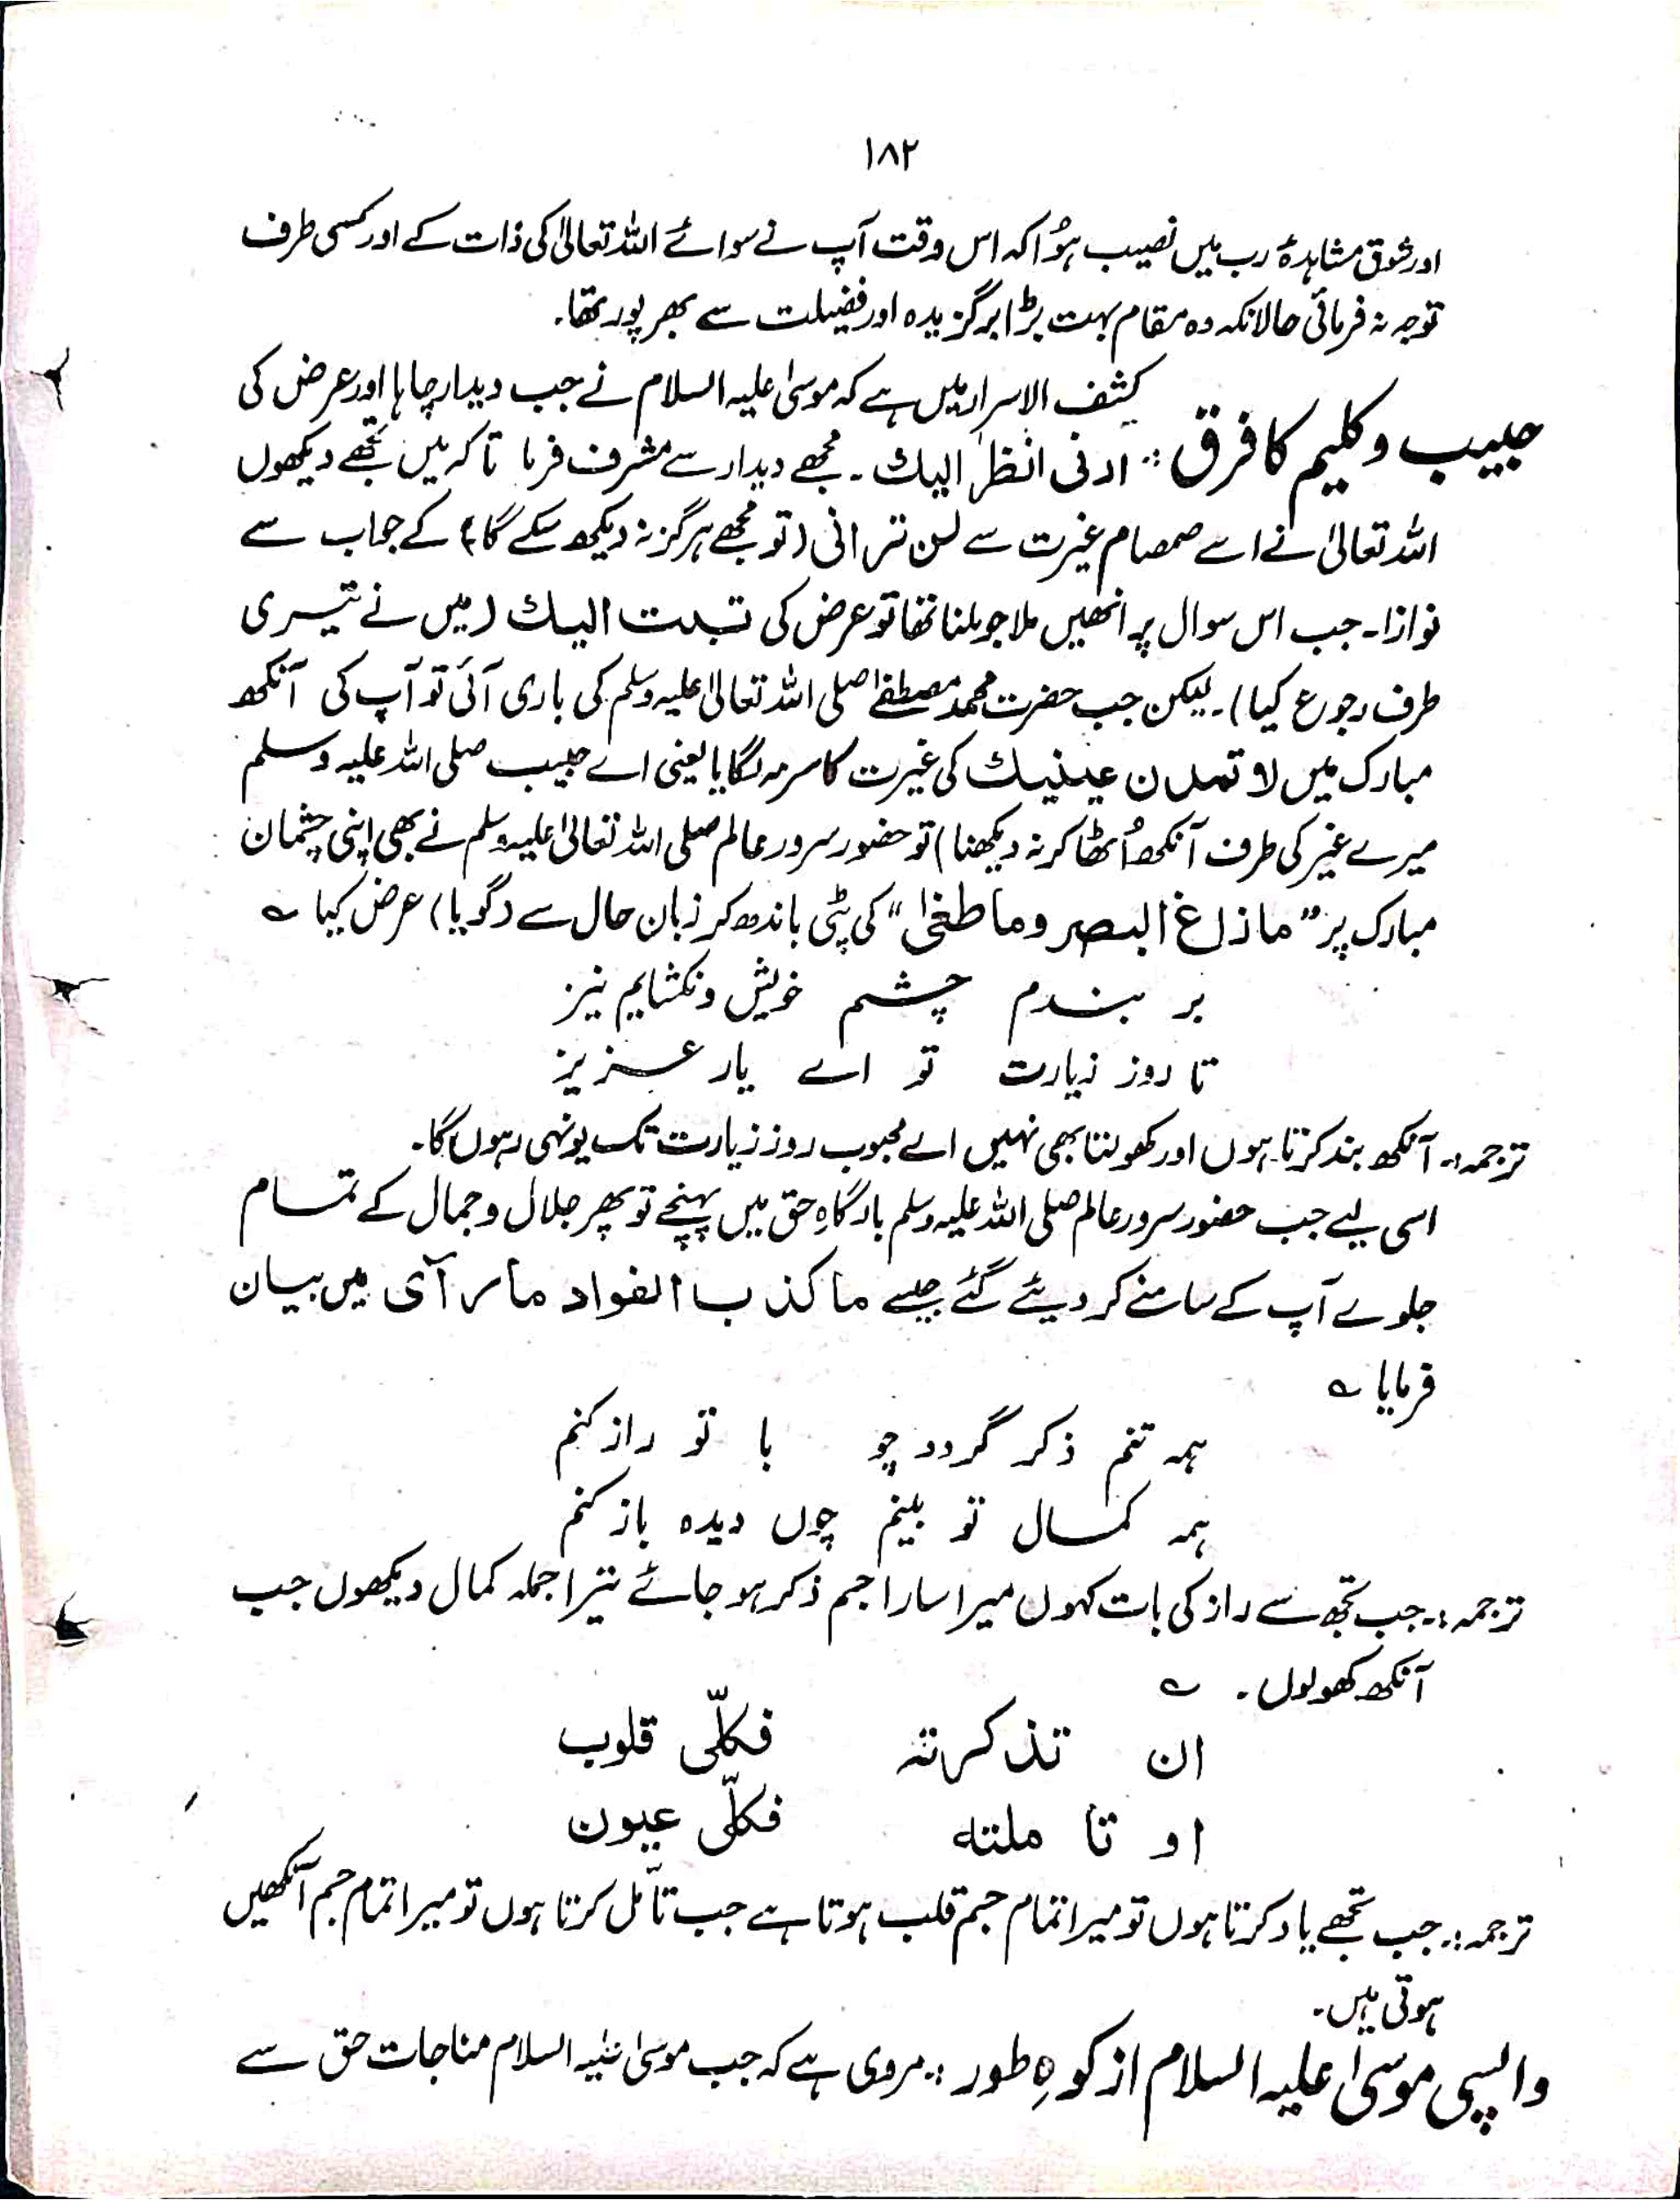 ۱۸۲
اور شوق مشاہدۂ رب میں نصیب ہؤا کہ اس وقت آپ نے سوائے اللہ تعالیٰ کی ذات کے اور کسی طرف
توجہ نہ فرمائی حالانکہ وہ مقام بہت بڑا برگزیدہ اور فضیلت سے بھرپور تھا۔
کشف الاسرار میں ہے کہ موسیٰ علیہ السلام نے جب دیدار چاہا اور عرض کی
حبیب و کلیم کا فرق :۔ ارنی انظر الیك ۔ مجھے دیدار سے مشرف فرما تاکہ میں تجھے دیکھوں
اللہ تعالیٰ نے اسے صمصام غیرت سے لن ترانی (تو مجھے ہرگز نہ دیکھ سکے گا) کے جواب سے
نوازا۔ جب اس سوال پر انھیں ملا جو ملنا تھا تو عرض کی تبت الیك (میں نے تیری
طرف رجوع کیا)۔ لیکن جب حضرت محمد مصطفےٰ صلی اللہ تعالیٰ علیہ وسلم کی باری آئی تو آپ کی آنکھ
مبارک میں لا تمدن عینیك کی غیرت کا سرمہ لگایا یعنی اے حبیب صلی اللہ علیہ وسلم
میرے غیر کی طرف آنکھ اُٹھا کر نہ دیکھنا) تو حضور سرور عالم صلی اللہ تعالیٰ علیہ وسلم نے بھی اپنی چشمان
مبارک پر ”ما زاغ البصر وما طغیٰ“ کی پٹی باندھ کر زبان حال سے (گویا) عرض کیا ؎
بر بندم چشم خویش و نکشایم نیز
تا روز زیارت تو اے یار عزیز
ترجمہ:۔ آنکھ بند کرتا ہوں اور کھولتا بھی نہیں اے محبوب روز زیارت تک یونہی رہوں گا۔
اسی لیے جب حضور سرور عالم صلی اللہ علیہ وسلم بارگاہِ حق میں پہنچے تو پھر جلال و جمال کے تمام
جلوے آپ کے سامنے کر دیئے گئے جیسے ما کذب الفواد ما رآی میں بیان
فرمایا ؎
ہمہ تنم ذکر گردد چو با تو راز کنم
ہمہ کمال تو بینم چوں دیدہ باز کنم
ترجمہ:۔ جب تجھ سے راز کی بات کہوں میرا سارا جسم ذکر ہو جائے تیرا جملہ کمال دیکھوں جب
آنکھ کھولوں ۔ ؎
ان تذکرته فکلّی قلوب
او تا ملته فکلّی عیون
ترجمہ:۔ جب تجھے یاد کرتا ہوں تو میرا تمام جسم قلب ہوتا ہے جب تأمل کرتا ہوں تو میرا تمام جسم آنکھیں
ہوتی ہیں۔
واپسی موسیٰ علیہ السلام از کوہِ طور :۔ مروی ہے کہ جب موسیٰ علیہ السلام مناجات حق سے